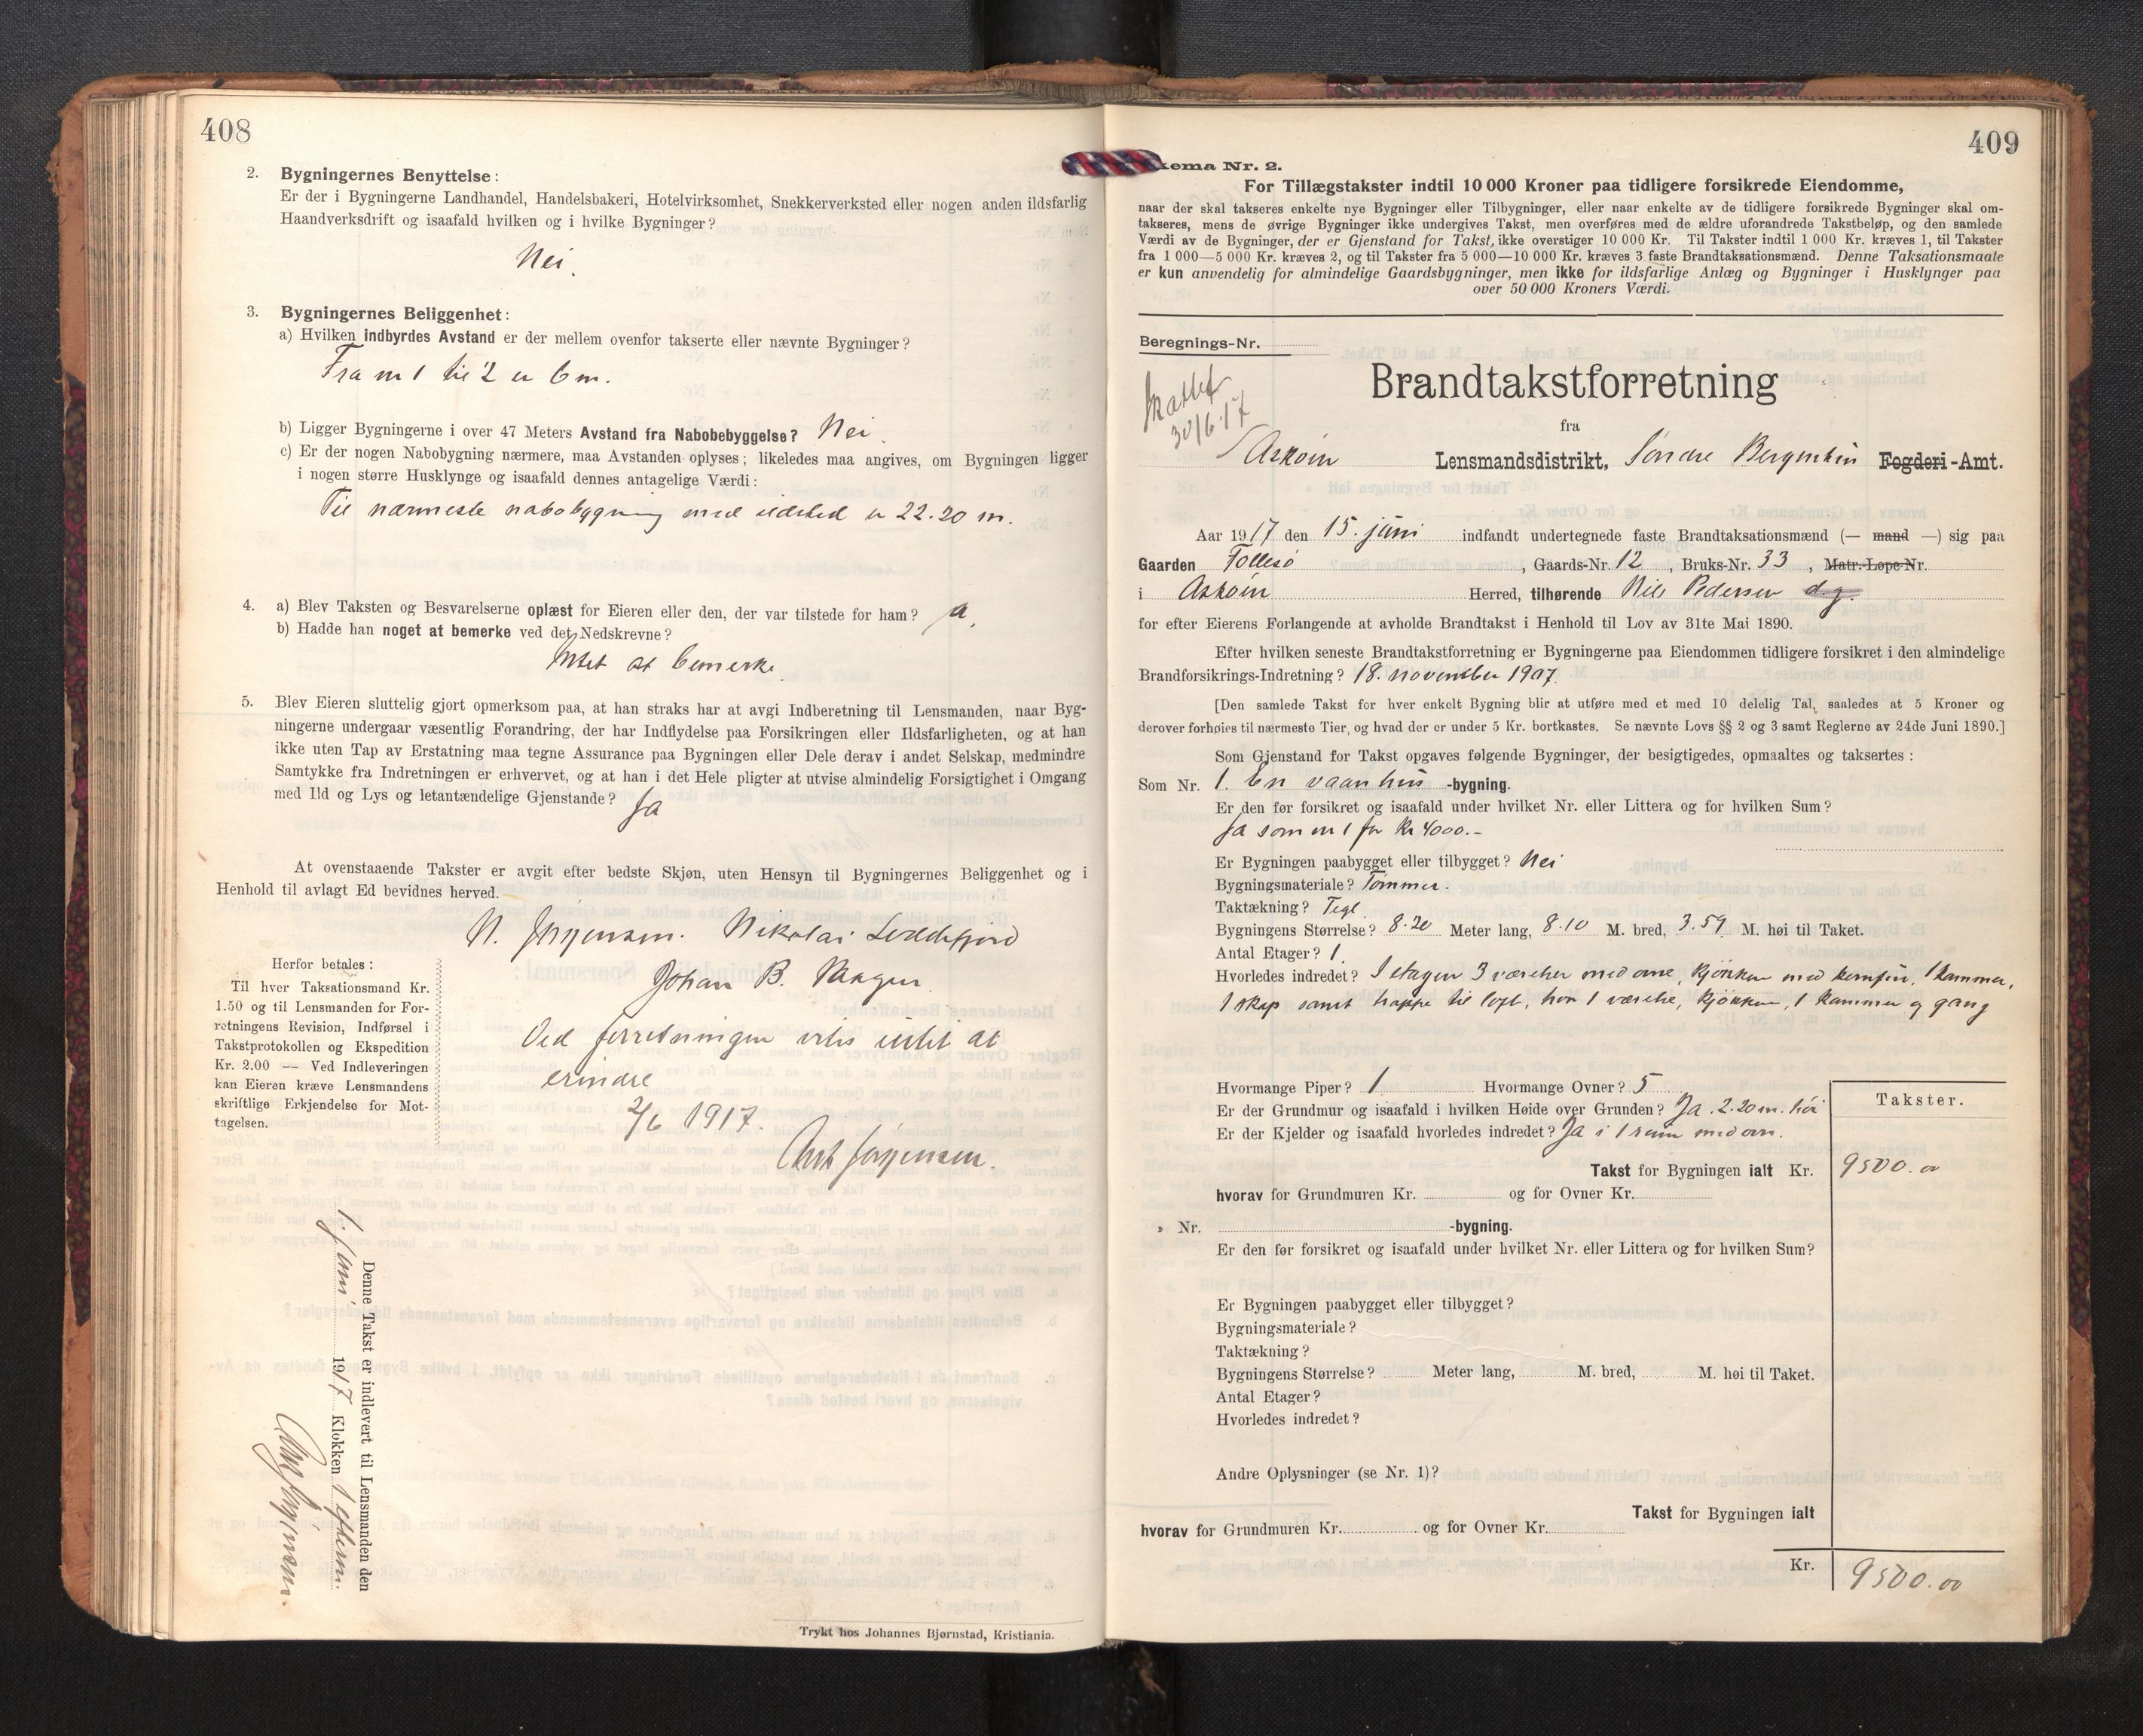 408
2. Bygningernes Benyttelse:
Er der i Bygningerne Landhandel, Handelsbakeri, Hotelvirksomhet, Snekkerverksted eller nogen anden ildsfarlig
Haandverksdrift og isaafald hvilken og i hvilke Bygninger?
Nei.
3. Bygningernes Beliggenhet:
a) Hvilken indbyrdes Avstand er der mellem ovenfor takserte eller nævnte Bygninger?
Fra nr 1 til 2 er 6 m.
b) Ligger Bygningerne i over 47 Meters Avstand fra Nabobebyggelse? Nei.
c) Er der nogen Nabobygning nærmere, maa Avstanden oplyses; likeledes maa angives, om Bygningen ligger
i nogen større Husklynge og isaafald dennes antagelige Værdi:
Til nærmeste nabobygning med ildsted er 22.20 m.
4. a) Blev Taksten og Besvarelserne oplæst for Eieren eller den, der var tilstede for ham? Ja.
b) Hadde han noget at bemerke ved det Nedskrevne?
Intet at bemerke.
5. Blev Eieren sluttelig gjort opmerksom paa, at han straks har at avgi Indberetning til Lensmanden, naar Byg-
ningerne undergaar væsentlig Forandring, der har Indflydelse paa Forsikringen eller Ildsfarligheten, og at han
ikke uten Tap av Erstatning maa tegne Assurance paa Bygningen eller Dele derav i andet Selskap, medmindre
Samtykke fra Indretningen er erhvervet, og at han i det Hele pligter at utvise almindelig Forsigtighet i Omgang
med Ild og Lys og letantændelige Gjenstande? Ja
At ovenstaaende Takster er avgit efter bedste Skjøn, uten Hensyn til Bygningernes Beliggenhet og i
Henhold til avlagt Ed bevidnes herved.
N. Jørgensen. Nikolai
Johan B. Haagen.
Herfor betales:
Til hver Taksationsmand Kr.
1.50 og til Lensmanden for For-
retningens Revision, Indførsel i
Takstprotokollen og Ekspedition
Kr. 2.00 — Ved Indleveringen
kan Eieren kræve Lensmandens
skriftlige Erkjendelse for Mot-
tagelsen.
Ved forretningen vites intet at
erindre
2/6 1917.
Jørgensen.
Denne Takst er indlevert til Lensmanden den
1 juni 1917 Klokken 1 efterm.
Jørgensen.
Trykt hos Johannes Bjørnstad, Kristiania.
409
kema Nr. 2.
For Tillægstakster indtil 10 000 Kroner paa tidligere forsikrede Eiendomme,
naar der skal takseres enkelte nye Bygninger eller Tilbygninger, eller naar enkelte av de tidligere forsikrede Bygninger skal om-
takseres, mens de øvrige Bygninger ikke undergives Takst, men overføres med de ældre uforandrede Takstbeløp, og den samlede
Værdi av de Bygninger, der er Gjenstand for Takst, ikke overstiger 10 000 Kr. Til Takster indtil 1 000 Kr. kræves 1, til Takster
fra 1 000—5 000 Kr. kræves 2, og til Takster fra 5 000—10 000 Kr. kræves 3 faste Brandtaksationsmænd. Denne Taksationsmaate
er kun anvendelig for almindelige Gaardsbygninger, men ikke for ildsfarlige Anlæg og Bygninger i Husklynger paa
over 50 000 Kroners Værdi.
Beregnings-Nr.
30/6 17
Brandtakstforretning
fra
Askøin Lensmandsdistrikt, Søndre Bergenhus Fogderi-Amt.
Aar 1917 den 15. juni indfandt undertegnede faste Brandtaksationsmænd (— mand —) sig paa
Gaarden Follesø, Gaards-Nr. 12, Bruks-Nr. 33, Matr.-Løpe-Nr.
i Askøin Herred, tilhørende Nils Pedersen d.y.
for efter Eierens Forlangende at avholde Brandtakst i Henhold til Lov av 31te Mai 1890.
Efter hvilken seneste Brandtakstforretning er Bygningerne paa Eiendommen tidligere forsikret i den almindelige
Brandforsikrings-Indretning? 18. november 1907.
[Den samlede Takst for hver enkelt Bygning blir at utføre med et med 10 delelig Tal, saaledes at 5 Kroner og
derover forhøies til nærmeste Tier, og hvad der er under 5 Kr. bortkastes. Se nævnte Lovs §§ 2 og 3 samt Reglerne av 24de Juni 1890.]
Som Gjenstand for Takst opgaves følgende Bygninger, der besigtigedes, opmaaltes og taksertes:
Som Nr. 1. En vaanhus -bygning.
Er den før forsikret og isaafald under hvilket Nr. eller Littera og for hvilken Sum?
Ja som nr 1 for Kr 4000.-
Er Bygningen paabygget eller tilbygget? Nei
Bygningsmateriale? Tømmer.
Taktækning? Tegl.
Bygningens Størrelse? 8.20 Meter lang, 8.10 M. bred, 3.59 M. høi til Taket.
Antal Etager? 1
Hvorledes indredet? I etagen 3 værelser med ovne, kjøkken med komfur, 1 kammer,
1 skap samt trappe til loft, hvor 1 værelse, kjøkken, 1 kammer og gang
Hvormange Piper? 1 Hvormange Ovner? 5
Er der Grundmur og isaafald i hvilken Høide over Grunden? Ja. 2.20 m. høi
Er der Kjelder og isaafald hvorledes indredet? Ja i 1 rum med ovn.
Takster.
Takst for Bygningen ialt Kr. 9500.00
hvorav for Grundmuren Kr. og for Ovner Kr.
» Nr. -bygning.
Er den før forsikret og isaafald under hvilket Nr. eller Littera og for hvilken Sum?
Er Bygningen paabygget eller tilbygget?
Bygningsmateriale?
Taktækning?
Bygningens Størrelse? Meter lang, M. bred, M. høi til Taket.
Antal Etager?
Hvorledes indredet?
Andre Oplysninger (se Nr. 1)?
Takst for Bygningen ialt
hvorav for Grundmuren Kr. og for Ovner Kr.
Kr. 9500.00